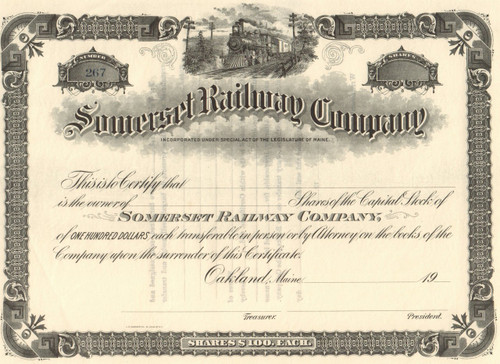 NUMBER
267
SHARES
Somerset Railway Company
INCORPORATED UNDER SPECIAL ACT OF THE LEGISLATURE OF MAINE.
This is to Certify that
is the owner of Shares of the Capital Stock of
SOMERSET RAILWAY COMPANY,
of ONE HUNDRED DOLLARS each transferable in person or by Attorney on the books of the
Company upon the surrender of this Certificate.
Oakland, Maine 19
Treasurer. President.
SHARES $100. EACH.